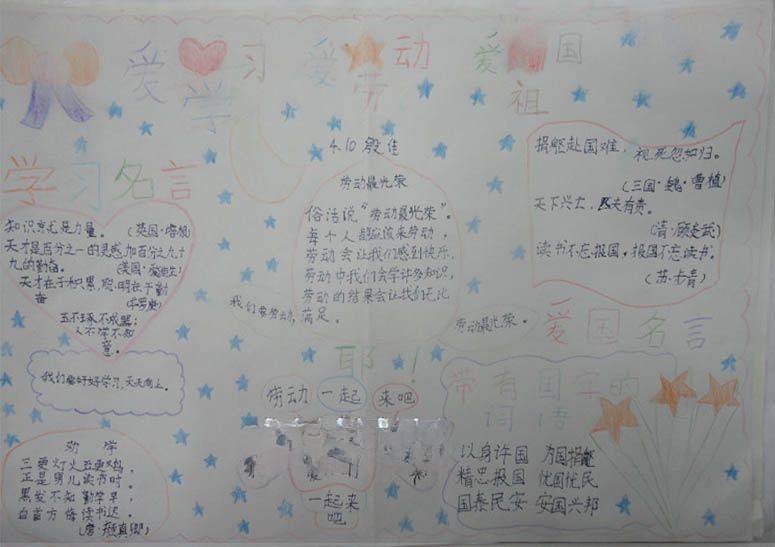 爱学习 爱劳动 爱祖国
4.10 殷佳
学习名言
知识就是力量。 (英国·培根)
天才是百分之一的灵感,加百分之九十
九的勤奋。 (美国·爱迪生)
天才在于积累,聪明在于勤
奋 (华罗庚)
玉不琢不成器;
人不学不知
意。
我们要好好学习,天天向上。
劝 学
三更灯火五更鸡,
正是男儿读书时。
黑发不知勤学早,
白首方悔读书迟。
(唐·颜真卿)
劳动最光荣
俗话说“劳动最光荣”。
每个人都应该来劳动,
劳动会让我们感到快乐,
劳动中我们会学许多知识,
劳动的结果会让我们无比
满足。
我们爱劳动,
劳动最光荣。
耶!
劳动 一起 来吧
一起来
吧
捐躯赴国难, 视死忽如归。
(三国·魏·曹植)
天下兴亡,匹夫有责。
(清·顾炎武)
读书不忘报国,报国不忘读书。
(苏·步青)
爱国名言
带有国字的
词语
以身许国 为国捐躯
精忠报国 忧国忧民
国泰民安 安国兴邦